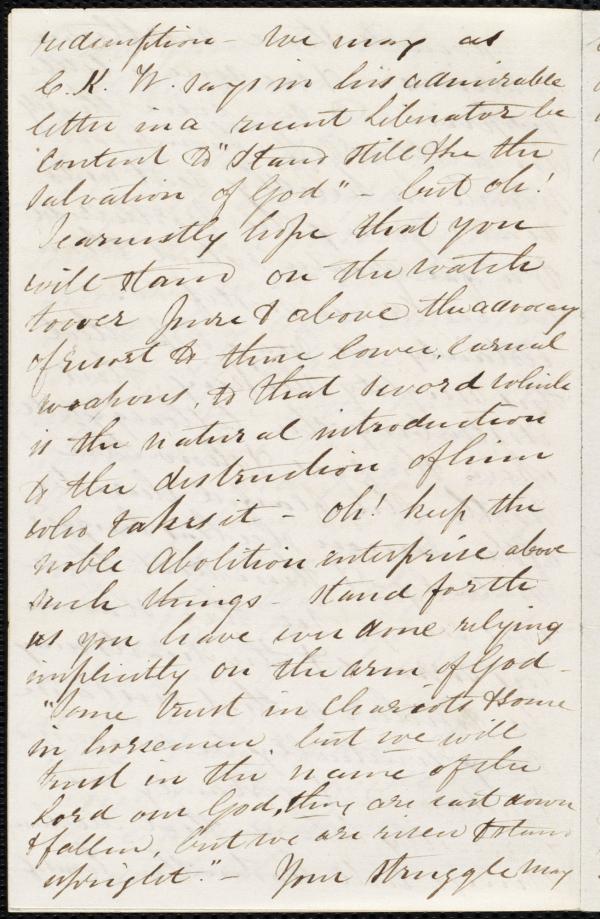 redemption - We may as
C. K. W. says in his admirable
letter in a recent Liberator be
content to "Stand still & see the
salvation of God" - but oh!
I earnestly hope that you
will stand on the watch
tower pure & above the advocacy
of resort to those lower, carnal
weapons, to that sword which
is the natural introduction
to the destruction of him
who takes it - Oh! keep the
noble Abolition enterprise above
such things - stand forth
as you have ever done relying
implicitly on the arm of God -
"Some trust in Chariots & some
in horsemen, but we will
trust in the name of the
Lord our God, they are cast down
& fallen, but we are risen & stand
upright." - Your struggle may